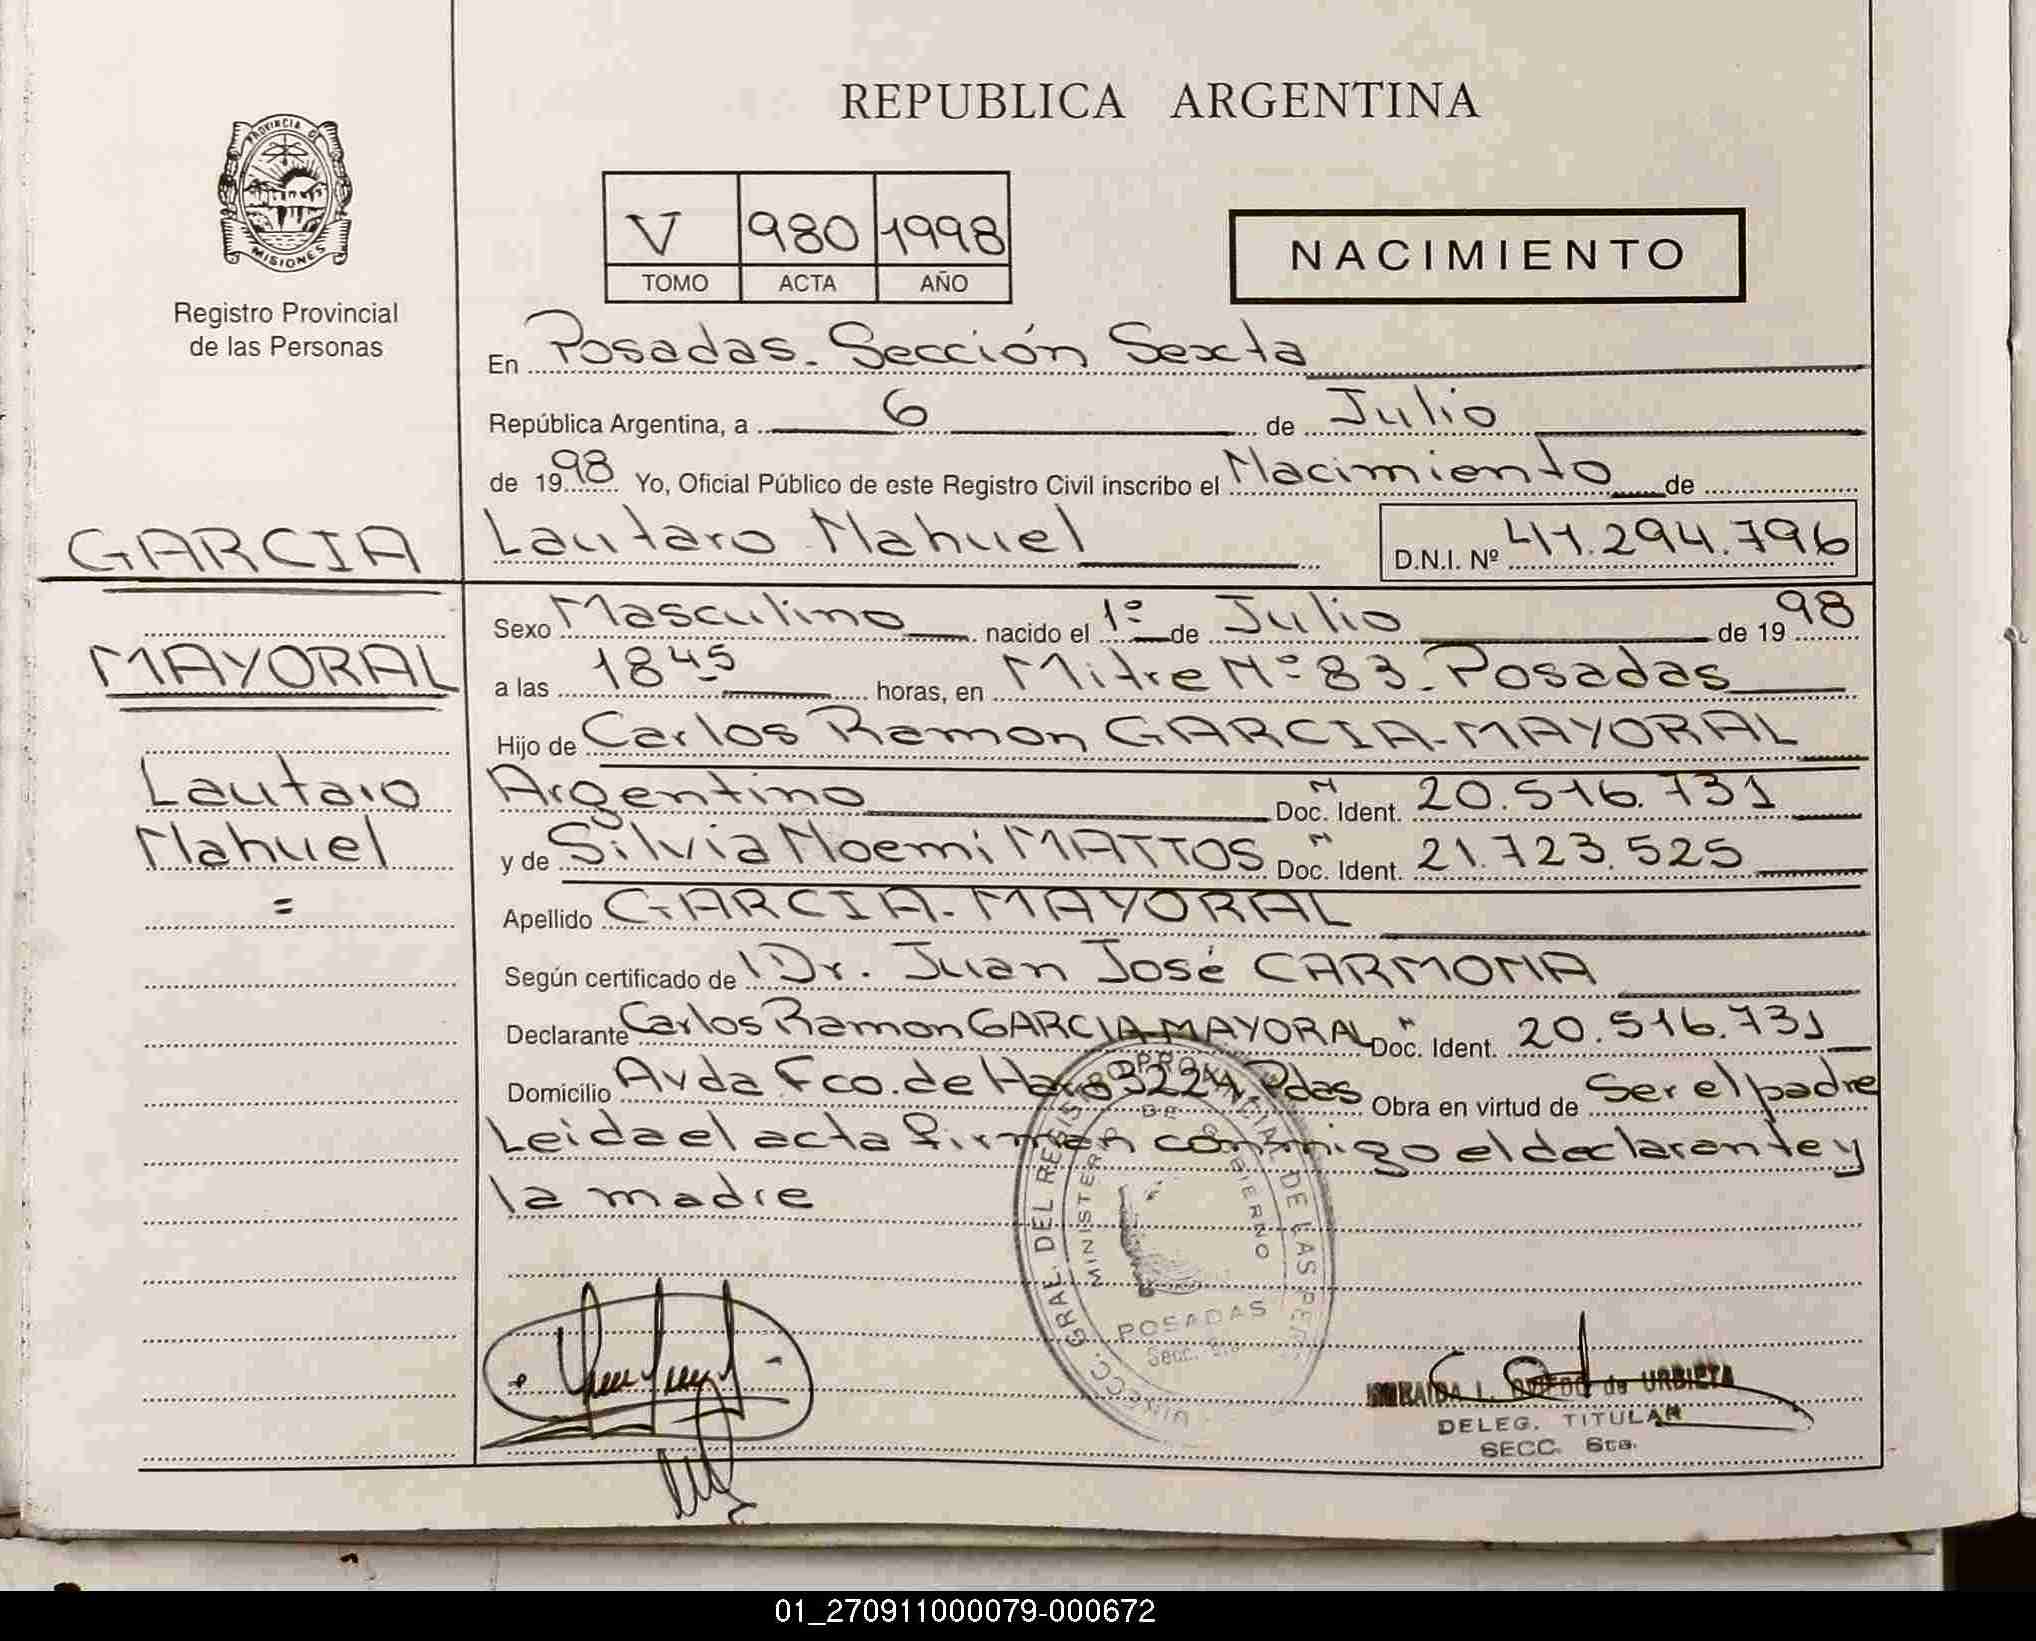 REPUBLICA ARGENTINA
PROVINCIA DE
MISIONES
Registro Provincial
de las Personas
V 980 1998
TOMO ACTA AÑO
NACIMIENTO
En Posadas - Sección Sexta
República Argentina, a 6 de Julio
de 1998 Yo, Oficial Público de este Registro Civil inscribo el Nacimiento de
GARCIA
Lautaro Nahuel D.N.I. Nº 41.294.796
Sexo Masculino nacido el 1º de Julio de 1998
MAYORAL
a las 18 45 horas, en Mitre Nº 83 - Posadas
Hijo de Carlos Ramon GARCIA-MAYORAL
Lautaro
Argentino Doc. Ident. N 20.516.731
Nahuel
y de Silvia Noemi MATTOS Doc. Ident. N 21.723.525
=
Apellido GARCIA-MAYORAL
Según certificado de Dr. Juan José CARMONA
Declarante Carlos Ramon GARCIA MAYORAL Doc. Ident. N 20.516.731
Domicilio Avda Fco. de Haro Pdas Obra en virtud de Ser el padre
Leida el acta firman conmigo el declarante y
la madre
GRAL. DEL REGISTRO PROVINCIAL DE LAS
MINISTERIO DE GOBIERNO
POSADAS
Secc.
I. OVIEDO de URBIETA
DELEG. TITULAR
SECC. 6ta.
01_270911000079-000672